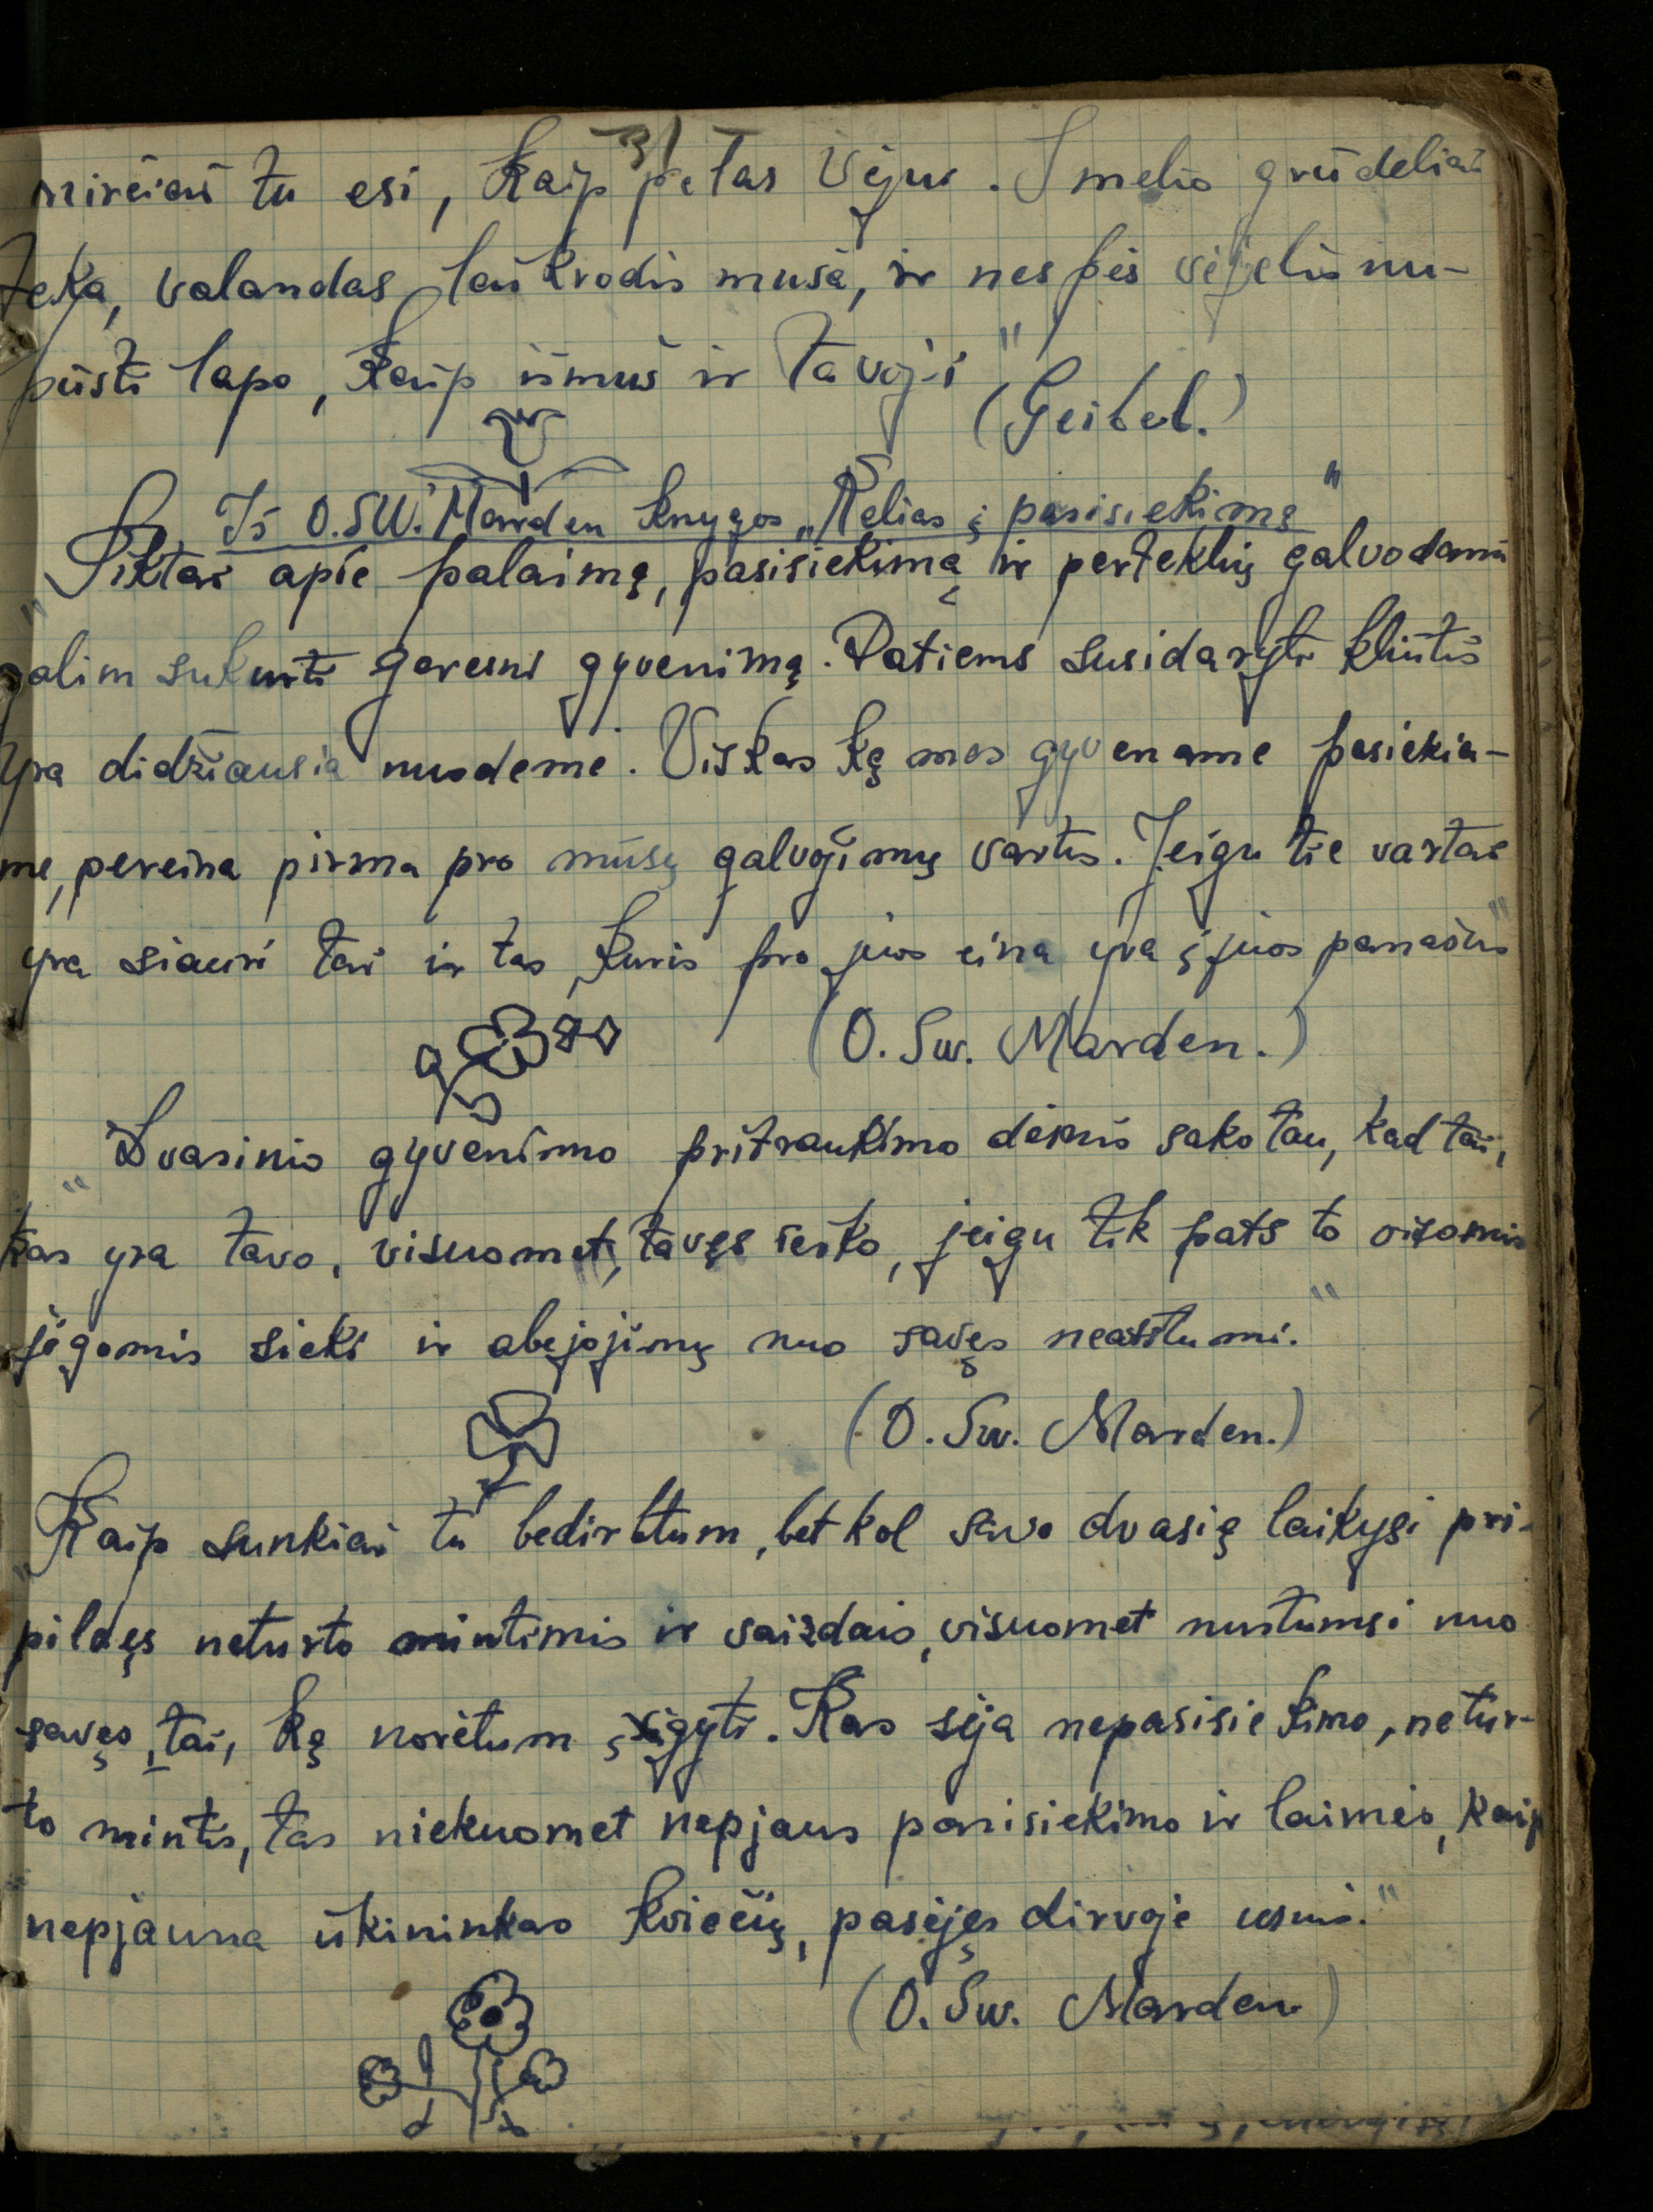 31
mirčiai tu esi, kaip pelas vėjui. Smelio grūdeliai
teka, valandas laikrodis muša, ir nespės vėjelis nu-
pūsti lapo, kaip išmuš ir tavoji"
(Geibel.)
Iš O. SW. Marden knygos „Kelias į pasisiekimą"
"Tiktai apie palaimą, pasisiekimą ir perteklių galvodami
galim sukurti geresnį gyvenimą. Patiems susidaryti kliūtis
yra didžiausia nuodeme. Viskas ką mes gyvename pasiekia-
me, pereina pirma pro mūsų galvojimų vartus. Jeigu tie vartai
yra siauri tai ir tas, kuris pro juos eina yra į juos panašus"
(O. Sw. Marden.)
"Dvasinio gyvenimo pritraukimo dėsnis sako tau, kad tai,
kas yra tavo, visuomet, tavęs ieško, jeigu tik pats to visomis
jėgomis sieki ir abejojimų nuo savęs neatstumi."
(O. Sw. Marden.)
„Kaip sunkiai tu bedirbtum, bet kol savo dvasią laikysi pri-
pildęs neturto mintimis ir vaizdais, visuomet nustumsi nuo
savęs, tai, ką norėtum įsigyti. Kas sėja nepasisiekimo, netur-
to mintis, tas niekuomet nepjaus pasisiekimo ir laimės, kaip
nepjauna ūkininkas kviečių, pasėjęs dirvoje usnis."
(O. Sw. Marden)